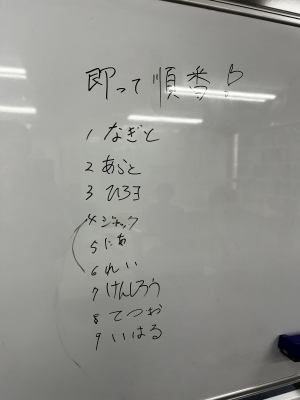 即って順番!
1 なぎと
2 あらと
3 ひろヨ
4 ジャック
5 にあ
6 れい
7 けんしろう
8 てつお
9 いはる